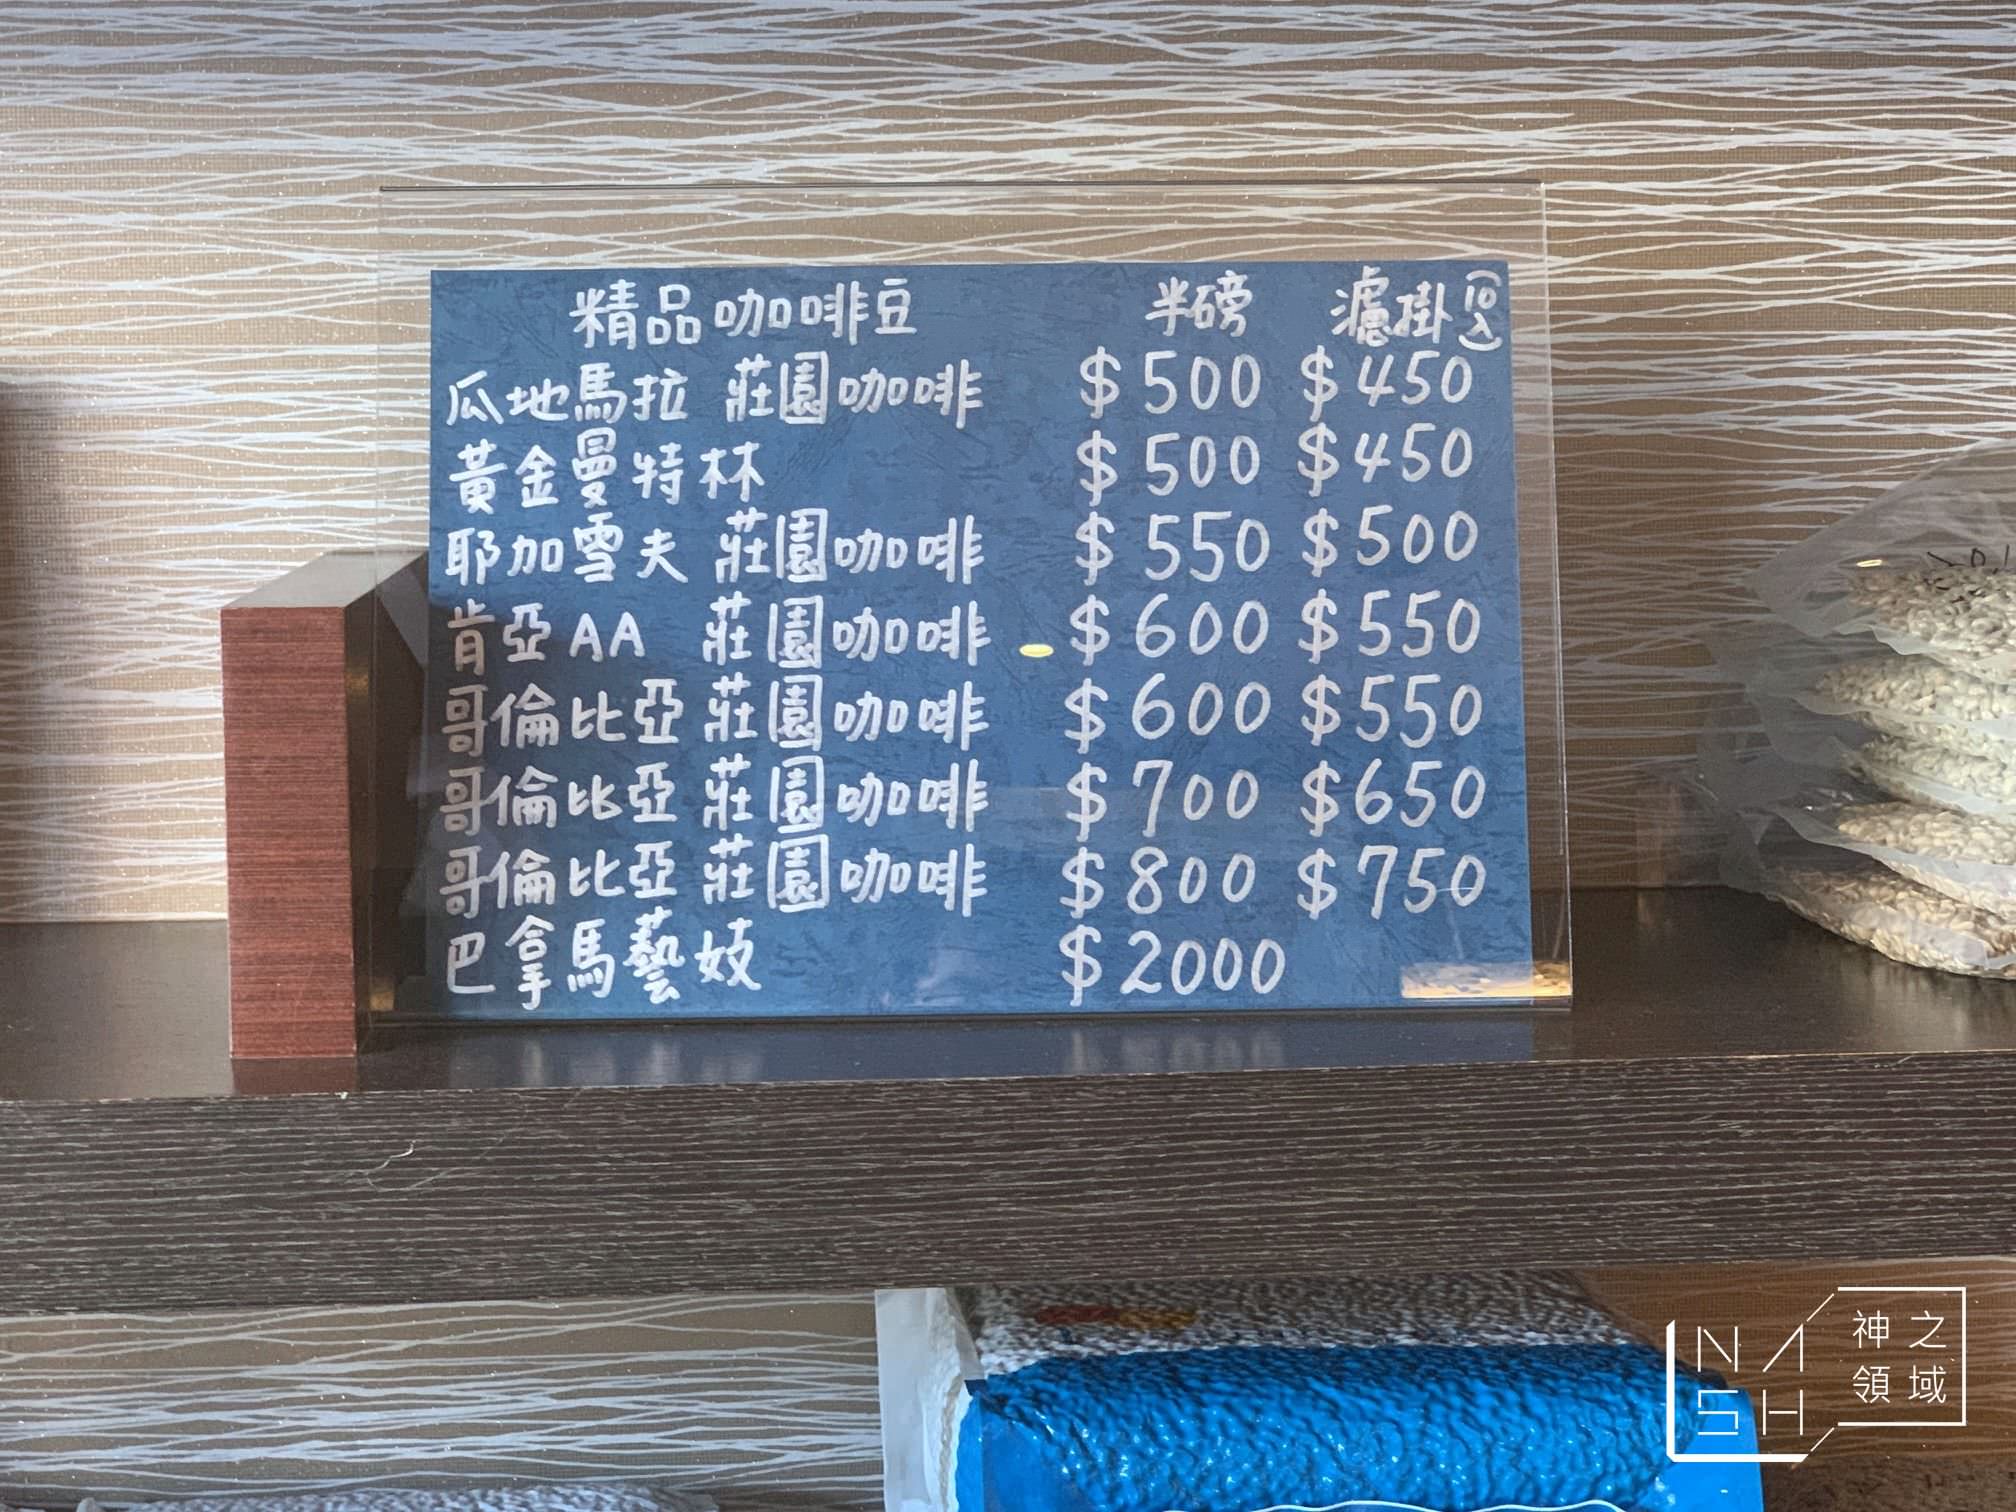 精品咖啡豆 半磅 濾掛(10入)
瓜地馬拉 莊園咖啡 $500 $450
黃金曼特林 $500 $450
耶加雪夫 莊園咖啡 $550 $500
肯亞AA 莊園咖啡 $600 $550
哥倫比亞 莊園咖啡 $600 $550
哥倫比亞 莊園咖啡 $700 $650
哥倫比亞 莊園咖啡 $800 $750
巴拿馬藝妓 $2000
NASH 神之領域